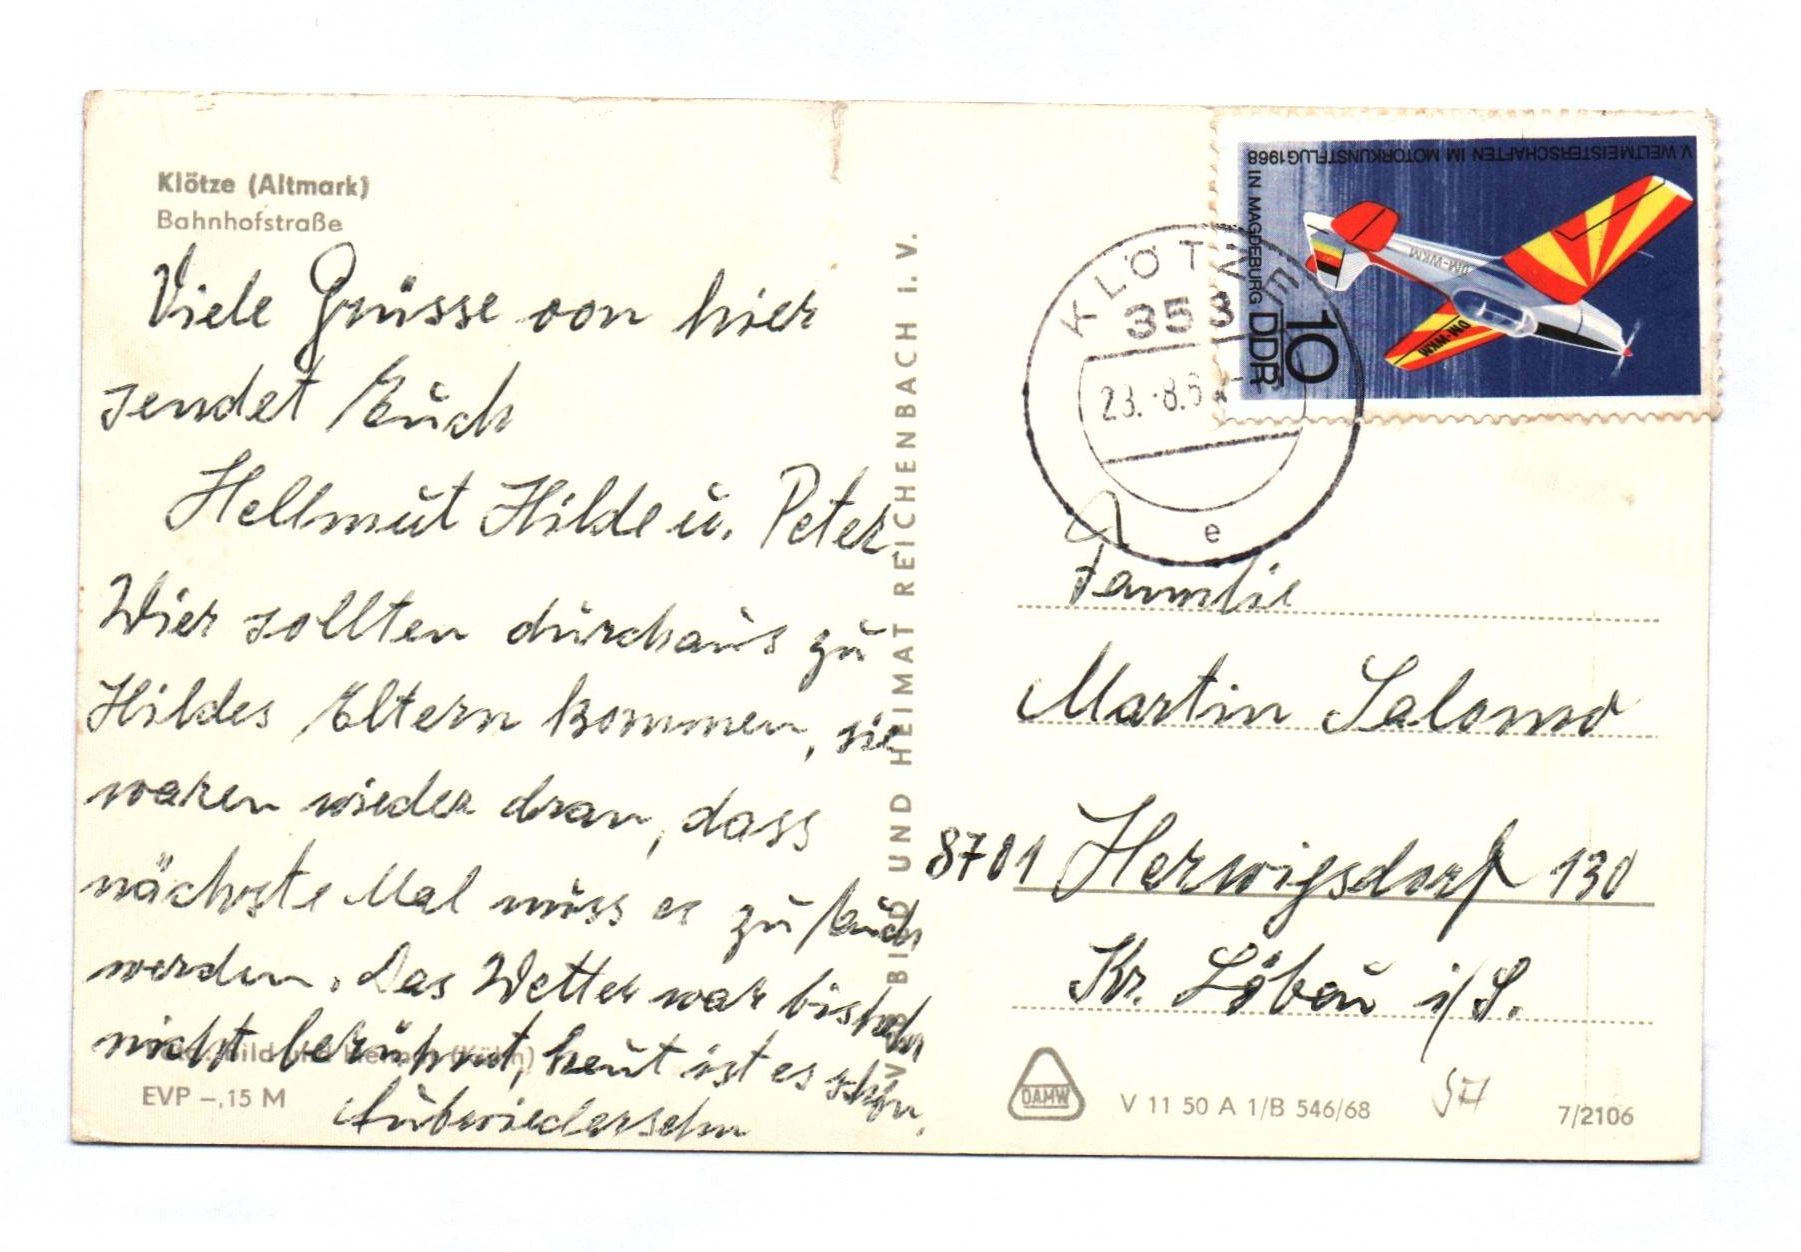 Klötze (Altmark)
Bahnhofstraße
Viele Grüsse von hier
sendet Euch
Hellmut Hilde u. Peter
Wier sollten durchaus zu
Hildes Eltern kommen, sie
waren wieder dran, dass
nächste Mal muss es zu Euch
werden. Das Wetter war bisher
nicht berühmt, heut ist es schön.
Aufwiedersehn
EVP –,15 M
BILD UND HEIMAT REICHENBACH i. V.
V. WELTMEISTERSCHAFTEN IM MOTORKUNSTFLUG 1968
IN MAGDEBURG
DDR
10
DM-WKM
DM-WKM
KLÖTZE
353
23.-8.6
e
Familie
Martin Salomo
8701 Herwigsdorf 130
Kr. Löbau i/S.
DAMW
V 11 50 A 1/B 546/68
7/2106